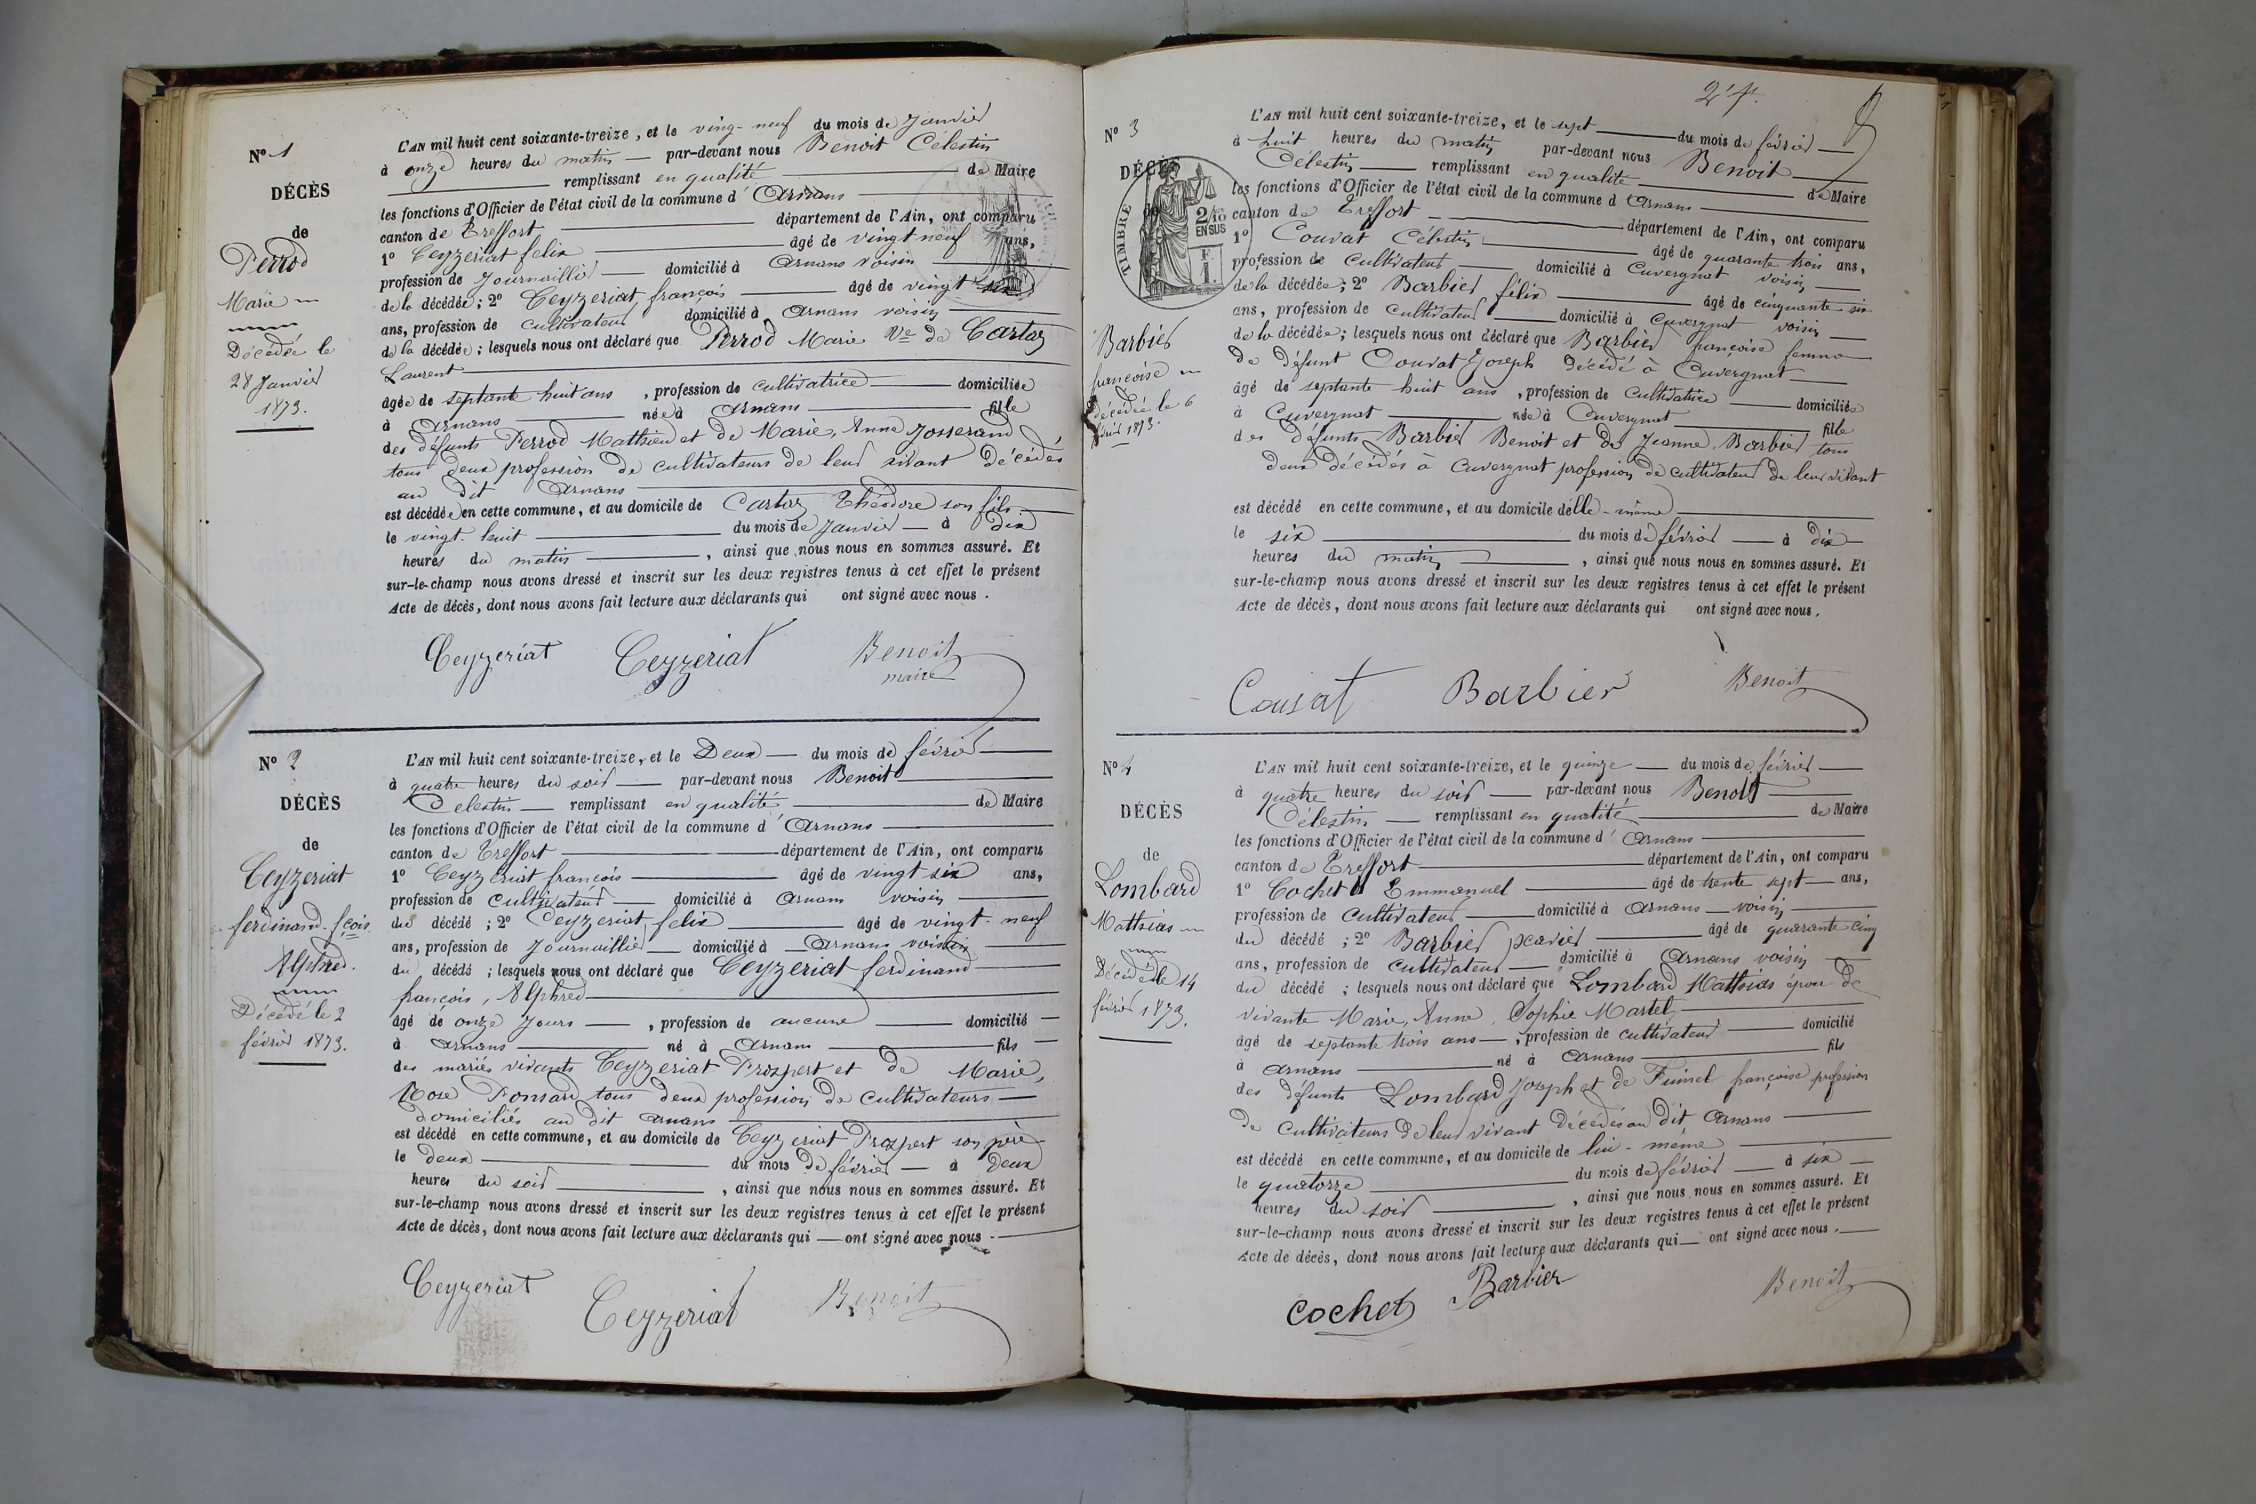 N° 1
DÉCÈS
de
Perrod
Marie
Décédée le
28 Janvier
1873.
L'AN mil huit cent soixante-treize, et le ving-neuf du mois de Janvier
à onze heures du matin par-devant nous Benoit Célestin
remplissant en qualité de Maire
les fonctions d'Officier de l'état civil de la commune d'Arnans
canton de Treffort département de l'Ain, ont comparu
1° Ceyzeriat felix âgé de vingt neuf ans,
profession de Journaillier domicilié à Arnans voisin
de la décédée; 2° Ceyzeriat, françois âgé de vingt six
ans, profession de cultivateur domicilié à Arnans voisin
de la décédée; lesquels nous ont déclaré que Perrod Marie Ve de Cartaz
Laurent
âgée de septante huit ans, profession de cultivatrice domiciliée
à Arnans née à Arnans fille
des défunts Perrod Mathieu et de Marie, Anne Josserand
tous deux profession de cultivateurs de leur vivant décédés
au dit Arnans
est décédée en cette commune, et au domicile de Cartaz Théodore son fils
le vingt-huit du mois de Janvier à dix
heures du matin, ainsi que nous nous en sommes assuré. Et
sur-le-champ nous avons dressé et inscrit sur les deux registres tenus à cet effet le présent
Acte de décès, dont nous avons fait lecture aux déclarants qui ont signé avec nous.
Ceyzeriat Ceyzeriat Benoit
maire
N° 2
DÉCÈS
de
Ceyzeriat
ferdinand-fçois
Alphred.
Décédé le 2
février 1873.
L'AN mil huit cent soixante-treize, et le Deux du mois de février
à quatre heures du soir par-devant nous Benoit
Célestin remplissant en qualité de Maire
les fonctions d'Officier de l'état civil de la commune d'Arnans
canton de Treffort département de l'Ain, ont comparu
1° Ceyzeriat françois âgé de vingt six ans,
profession de cultivateur domicilié à Arnans voisin
du décédé; 2° Ceyzeriat, felix âgé de vingt-neuf
ans, profession de Journaillier domicilié à Arnans voisin
du décédé; lesquels nous ont déclaré que Ceyzeriat ferdinand
françois, Alphred
âgé de onze Jours, profession de aucune domicilié
à Arnans né à Arnans fils
des mariés vivants Ceyzeriat Prospert et de Marie,
Rose Ponsard tous deux profession de cultivateurs
domiciliés au dit Arnans
est décédé en cette commune, et au domicile de Ceyzeriat Prospert son père
le deux du mois de février à deux
heures du soir, ainsi que nous nous en sommes assuré. Et
sur-le-champ nous avons dressé et inscrit sur les deux registres tenus à cet effet le présent
Acte de décès, dont nous avons fait lecture aux déclarants qui ont signé avec nous.
Ceyzeriat Ceyzeriat Benoit
N° 3
DÉCÈS
de
TIMBRE
2/10
EN SUS
F.
1.
Barbier
françoise
décédée le 6
février 1873.
L'AN mil huit cent soixante-treize, et le sept du mois de février
à huit heures du matin par-devant nous Benoit
Célestin remplissant en qualité de Maire
les fonctions d'Officier de l'état civil de la commune d'Arnans
canton de Treffort département de l'Ain, ont comparu
1° Couvat Célestin âgé de quarante trois ans,
profession de cultivateur domicilié à Cuvergnat voisin
de la décédée; 2° Barbier félix âgé de cinquante-six
ans, profession de cultivateur domicilié à Cuvergnat voisin
de la décédée; lesquels nous ont déclaré que Barbier françoise femme
de défunt Couvat Joseph décédé à Cuvergnat
âgé de septante huit ans, profession de Cultivatrice domiciliée
à Cuvergnat née à Cuvergnat fille
des défunts Barbier Benoit et de Jeanne Barbier tous
deux décédés à Cuvergnat profession de cultivateur de leur vivant
est décédé en cette commune, et au domicile d'elle-même
le six du mois de février à dix
heures du matin, ainsi que nous nous en sommes assuré. Et
sur-le-champ nous avons dressé et inscrit sur les deux registres tenus à cet effet le présent
Acte de décès, dont nous avons fait lecture aux déclarants qui ont signé avec nous.
Couvat Barbier Benoit
N° 4
DÉCÈS
de
Lombard
Matthias
Décédé le 14
février 1873.
L'AN mil huit cent soixante-treize, et le quinze du mois de février
à quatre heures du soir par-devant nous Benoit
Célestin remplissant en qualité de Maire
les fonctions d'Officier de l'état civil de la commune d'Arnans
canton de Treffort département de l'Ain, ont comparu
1° Cochet Emmanuel âgé de trente sept ans,
profession de cultivateur domicilié à Arnans voisin
du décédé; 2° Barbier xavier âgé de quarante-cinq
ans, profession de cultivateur domicilié à Arnans voisin
du décédé; lesquels nous ont déclaré que Lombard Matthias époux de
vivante Marie, Anne, Sophie Martel
âgé de septante trois ans, profession de cultivateur domicilié
à Arnans né à Arnans fils
des défunts Lombard Joseph et de françoise profession
de cultivateurs de leur vivant décédés au dit Arnans
est décédé en cette commune, et au domicile de lui-même
le quatorze du mois de février à six
heures du soir, ainsi que nous nous en sommes assuré. Et
sur-le-champ nous avons dressé et inscrit sur les deux registres tenus à cet effet le présent
Acte de décès, dont nous avons fait lecture aux déclarants qui ont signé avec nous.
Cochet Barbier Benoit